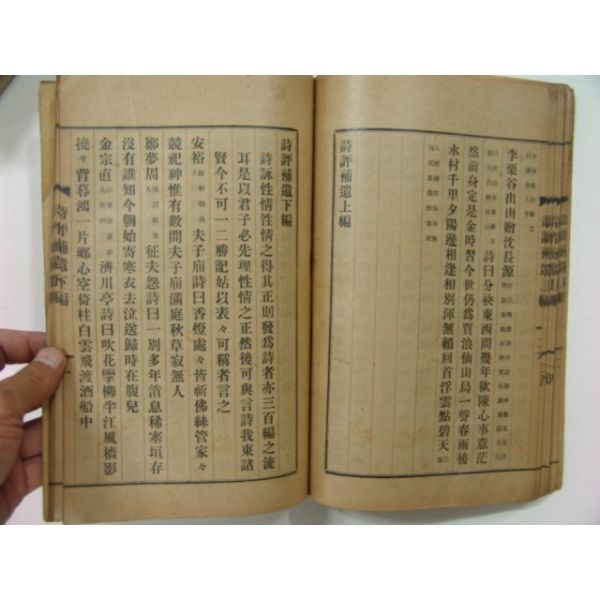 李栗谷出山贈沈長源
詩曰分袂東西問幾年欲陳心事意茫
然前身定是金時習今世仍爲賈浪仙山鳥一聲春雨後
水村千里夕陽邊相逢相別渾無賴回首浮雲點碧天
詩評補遺上編
詩評補遺下編
詩詠性情性情之得其正則發爲詩者亦三百編之流
耳是以君子必先理性情之正然後可與言詩我東諸
賢今不可一二勝記姑以表々可稱者言之
安裕 夫子廟詩曰香燈處々皆祈佛絲管家々
競祀神惟有數間夫子廟滿庭秋草寂無人
鄭夢周 征夫怨詩曰一別多年消息稀塞垣存
沒有誰知今朝始寄寒衣去泣送歸時在腹兒
金宗直 濟川亭詩曰吹花擘柳半江風檣影
搖々背暮鴻一片鄉心空倚柱白雲飛渡酒船中
詩評補遺下編